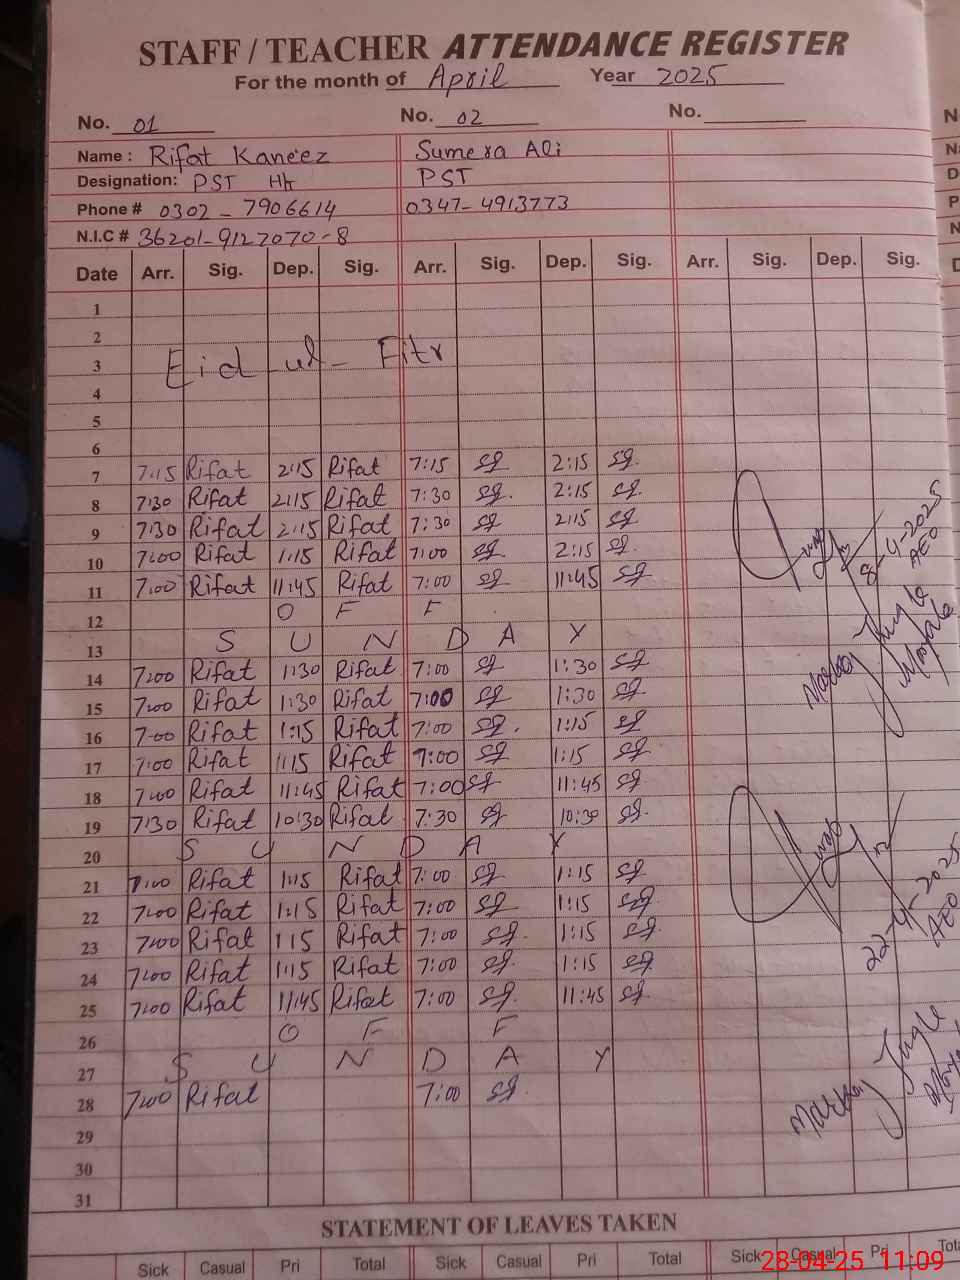 STAFF / TEACHER ATTENDANCE REGISTER
For the month of April Year 2025
No. 01 No. 02 No.
Name : Rifat Kaneez Sumera Ali
Designation: PST Ht PST
Phone # 0302 - 7906614 0347-4913773
N.I.C # 36201-9127070-8
Date Arr. Sig. Dep. Sig. Arr. Sig. Dep. Sig. Arr. Sig. Dep. Sig.
1
2
3 Eid-ul-Fitr
4
5
6
7 7:15 Rifat 2:15 Rifat 7:15 sg 2:15 sg.
8 7:30 Rifat 2:15 Rifat 7:30 sg. 2:15 sg.
9 7:30 Rifat 2:15 Rifat 7:30 sg 2:15 sg
10 7:00 Rifat 1:15 Rifat 7:00 sg 2:15 sg.
11 7:00 Rifat 11:45 Rifat 7:00 sg 11:45 sg
12 O F F
13 S U N D A Y
14 7:00 Rifat 1:30 Rifat 7:00 sg 1:30 sg
15 7:00 Rifat 1:30 Rifat 7:00 sg 1:30 sg
16 7:00 Rifat 1:15 Rifat 7:00 sg. 1:15 sg
17 7:00 Rifat 1:15 Rifat 7:00 sg 1:15 sg
18 7:00 Rifat 11:45 Rifat 7:00 sg 11:45 sg
19 7:30 Rifat 10:30 Rifat 7:30 sg 10:30 sg.
20 S U N D A Y
21 7:00 Rifat 1:15 Rifat 7:00 sg 1:15 sg
22 7:00 Rifat 1:15 Rifat 7:00 sg 1:15 sg.
23 7:00 Rifat 1:15 Rifat 7:00 sg. 1:15 sg.
24 7:00 Rifat 1:15 Rifat 7:00 sg. 1:15 sg
25 7:00 Rifat 11:45 Rifat 7:00 sg. 11:45 sg.
26 O F F
27 S U N D A Y
28 7:00 Rifat 7:00 sg.
29
30
31
8-4-2025
AEO
22-4-2025
AEO
STATEMENT OF LEAVES TAKEN
Sick Casual Pri Total Sick Casual Pri Total Sick Casual Pri
28-04-25 11:09